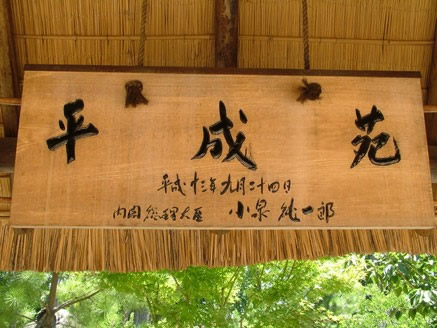 平成苑
平成十三年九月二十四日
内閣総理大臣 小泉純一郎